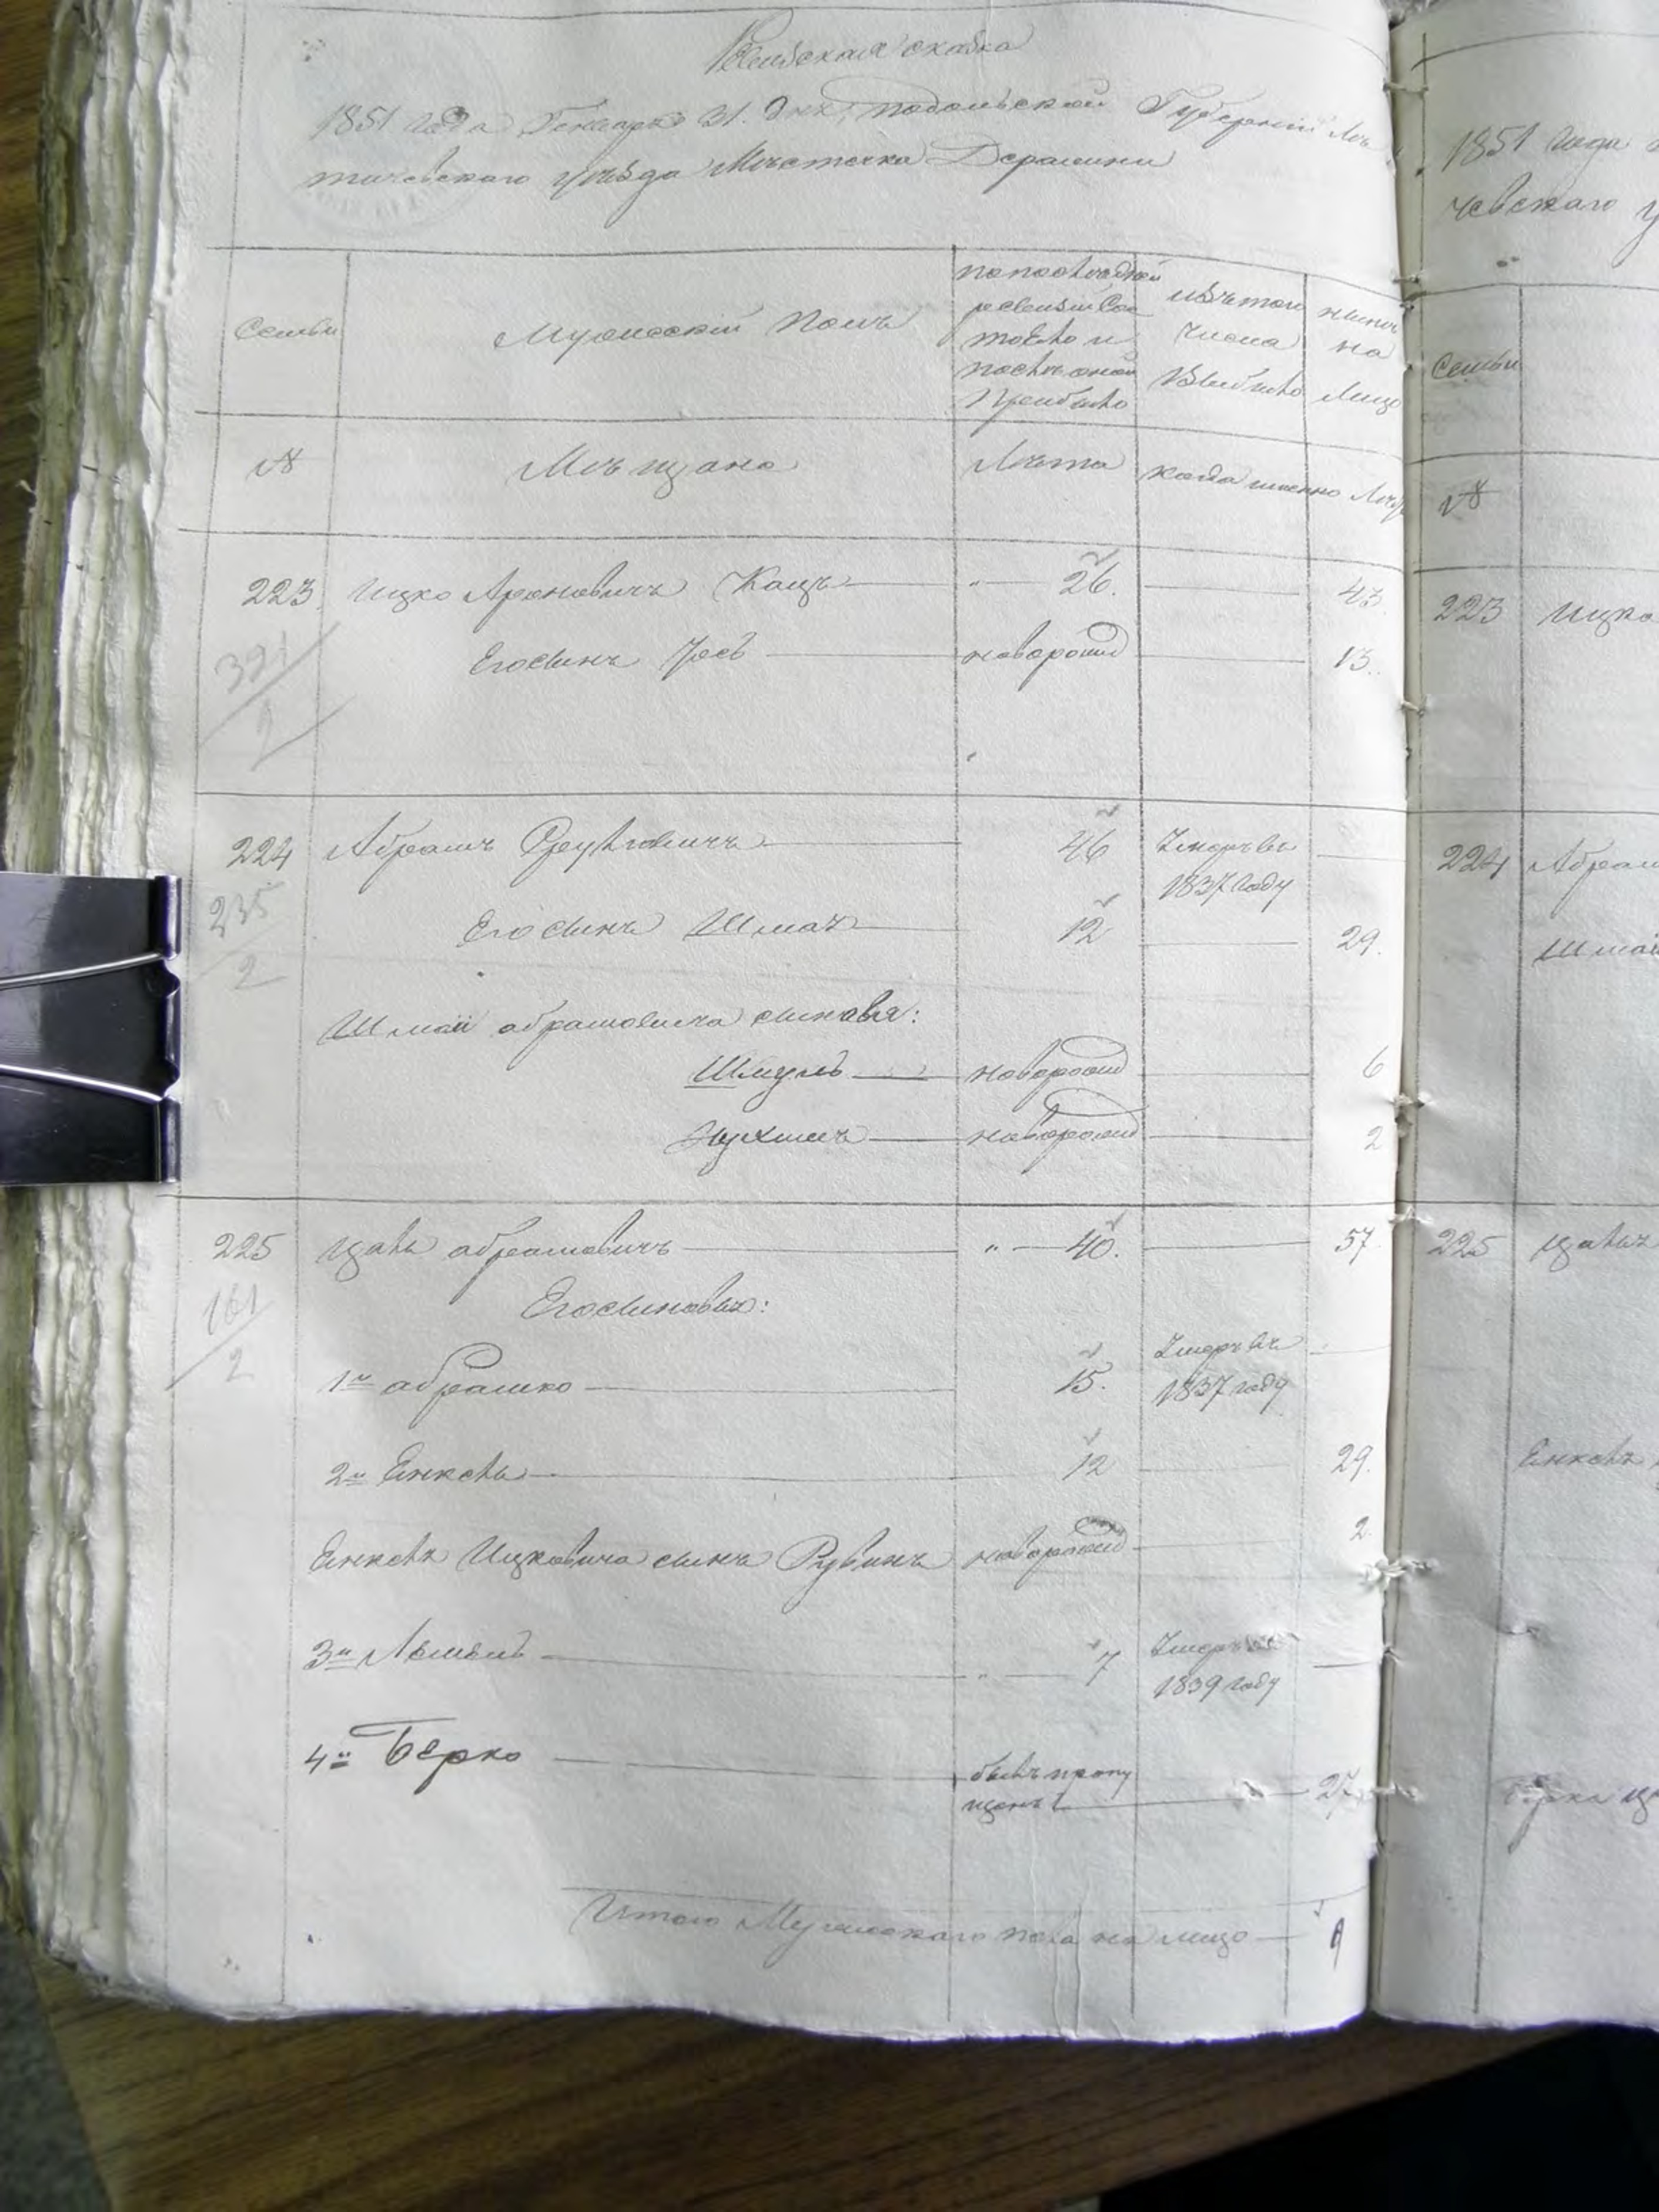 Ревизская сказка
1851 года Генваря 31. дня, Подольской Губернии Ле
тичевского уѣзда Мѣстечка Деражни
Семьи
Мужескій Полъ
По последней
ревизіи Сос
тояло и
после оной
Прибыло
изъ того
числа
Выбыло
нынѣ
на
Лицо
№
Мѣщане
Лѣта
когда именно
Лѣта
223
Ицко Ароновичъ Кацъ
26.
43
Его сынъ Іось
новорожд
13.
391
2
224
Абрамъ
46
Умеръ въ
1837 году
235
2
Его сынъ Шмая
12
29.
Шмаи абрамовича сыновья:
Шмуль
новорожд
6
Нухимъ
новорожд
2
225
абрамовичъ
40.
57
161
2
Его сыновья:
1й абрашко
15.
Умеръ въ
1837 году
2й Янкель
12
29.
Янкеля Ицковича сынъ Рувинъ
новорожд
2
3й
7
Умеръ въ
1839 году
4й Берко
былъ пропу
щенъ
27
Итого Мужескаго пола на лицо
9
1851 года
чевскаго у
Семьи
№
223
Ицка
224
Абрам
Шмаи
225
Янкеля
Берка